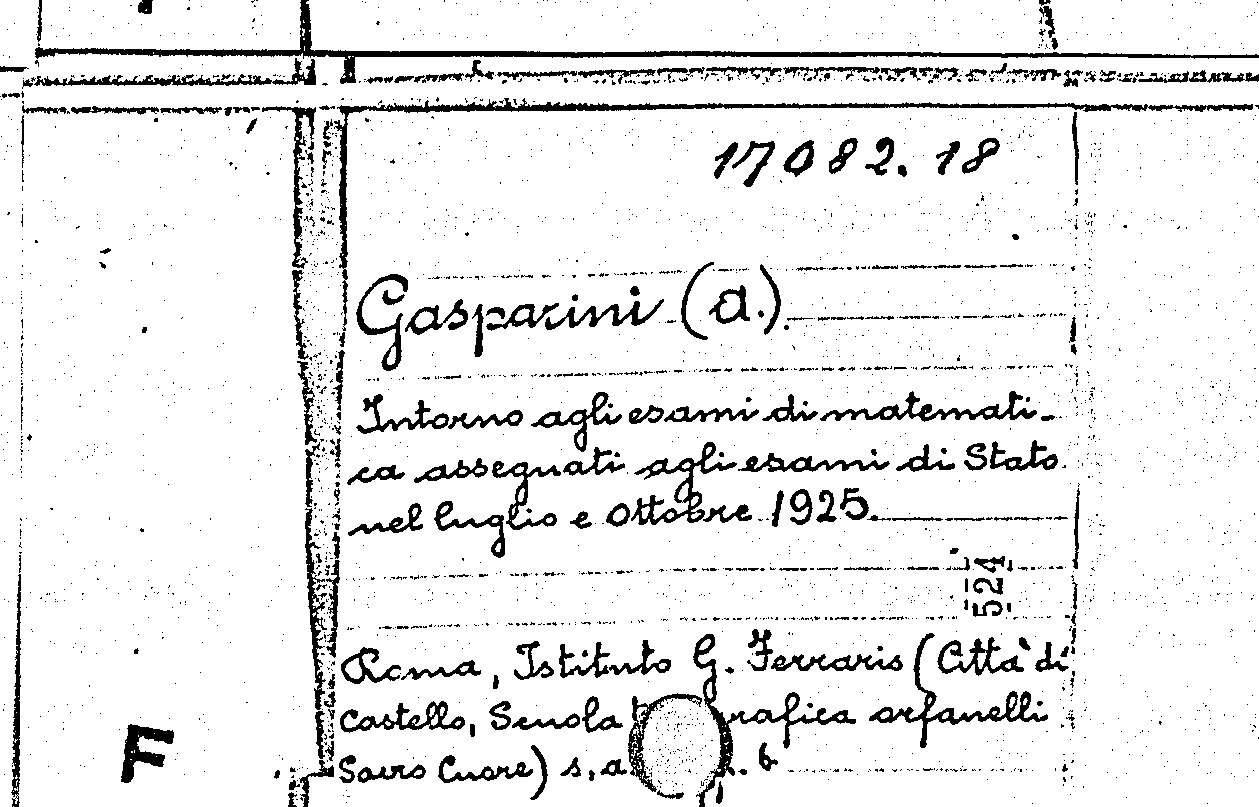 17082.18
Gasparini (A.)
Intorno agli esami di matemati-
ca assegnati agli esami di Stato
nel luglio e ottobre 1925.
524
Roma, Istituto G. Ferraris (Città di
Castello, Scuola orfanelli
Sacro Cuore) s.a. 6
F